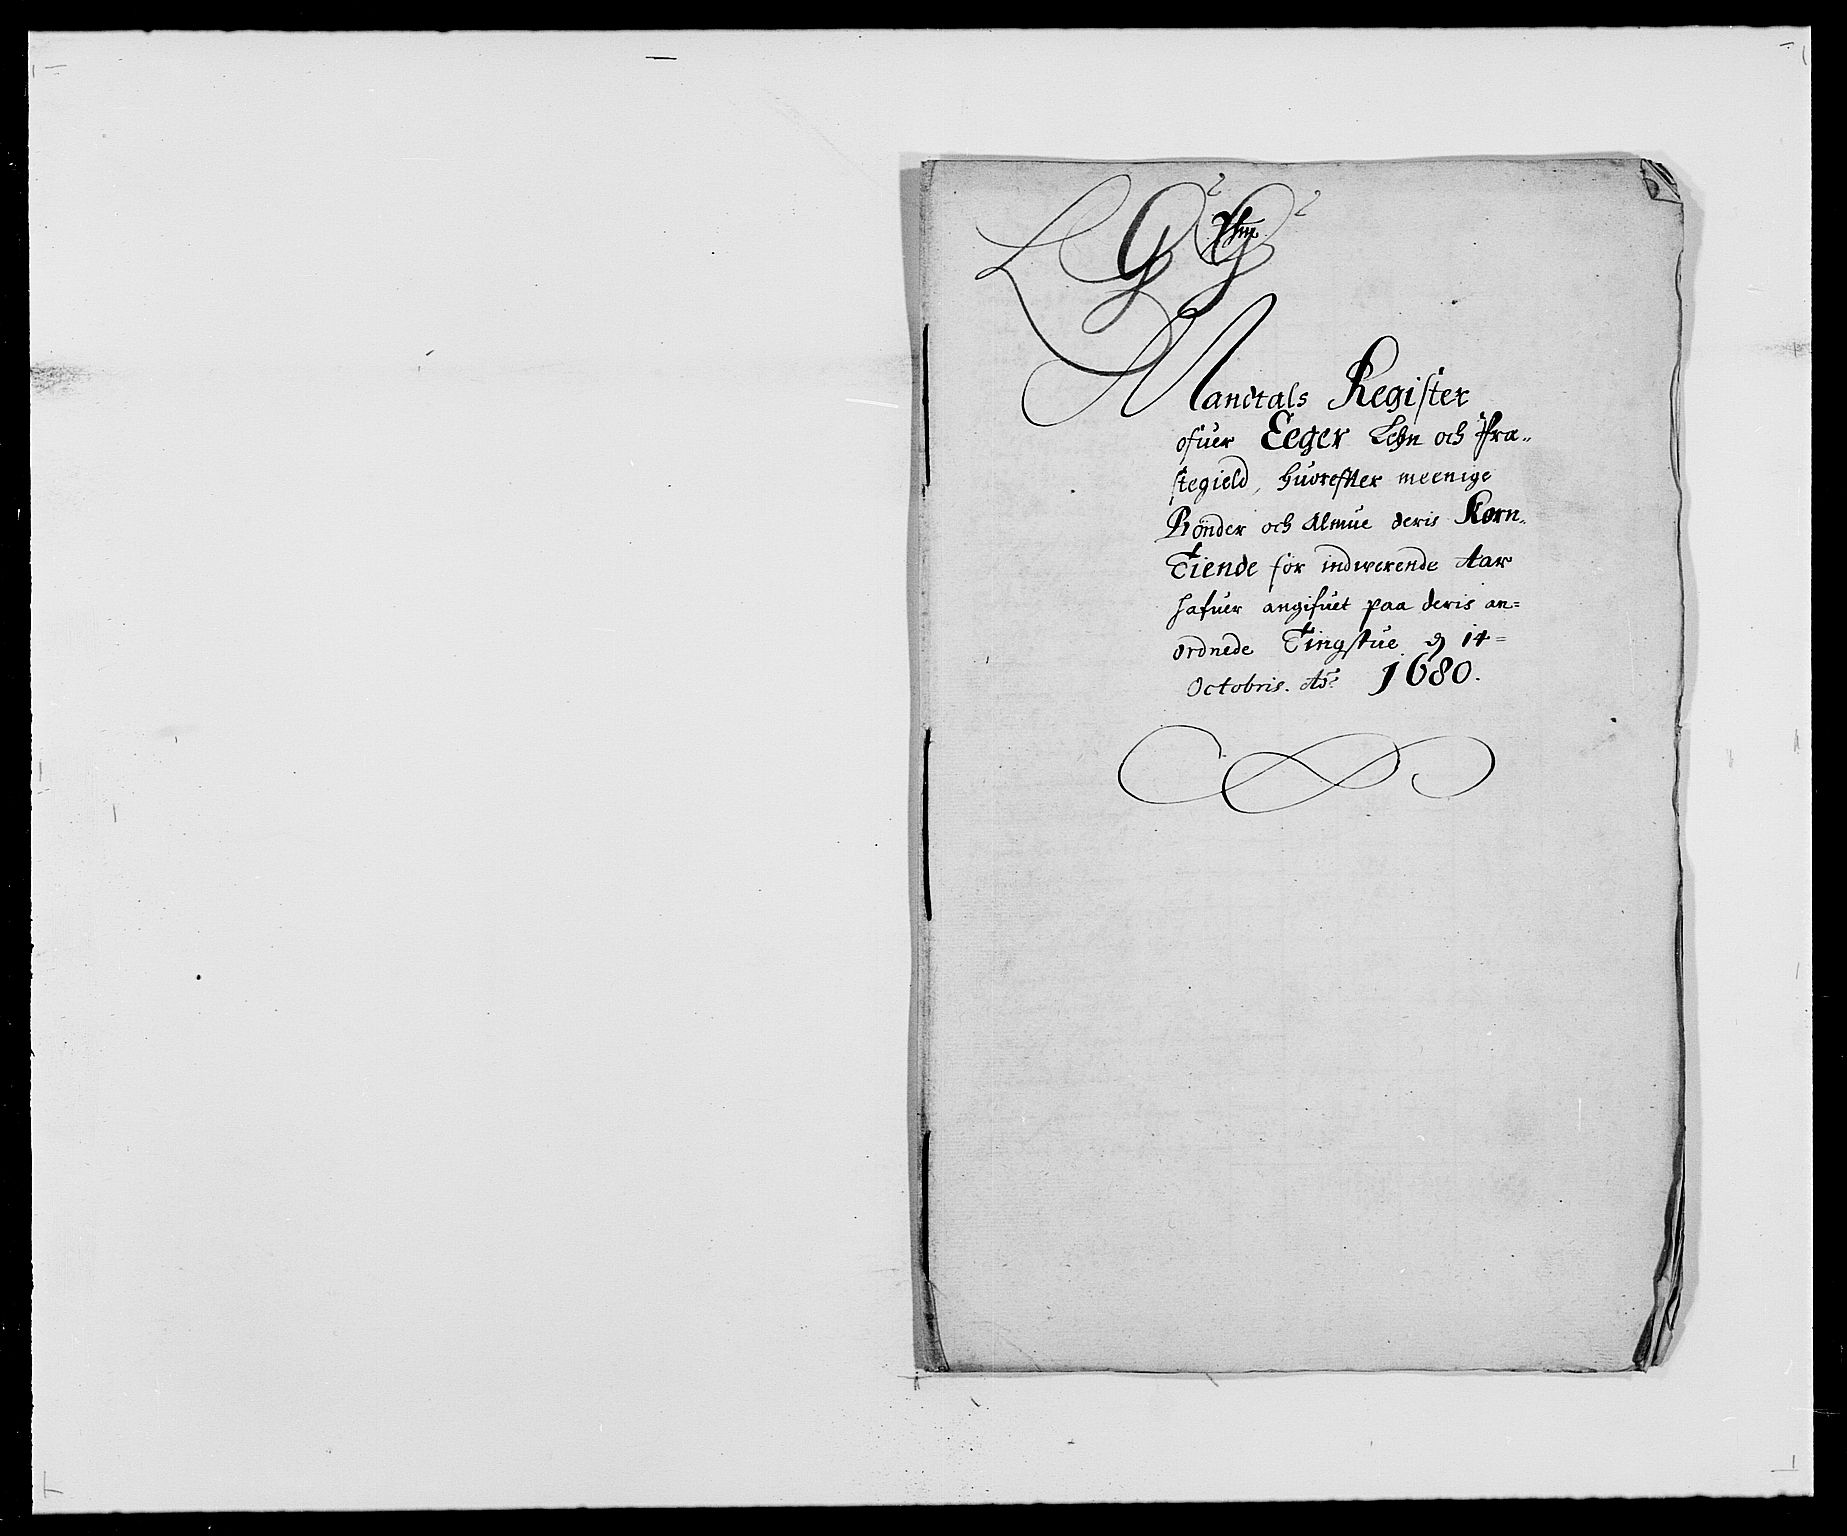 Mandtals Register
ofuer Eeger Lehn och Præ-
stegield, huorefter meenige
Bönder och Almue deris Korn-
Tiende for indwerende Aar
hafuer angifuet paa deris an=
ordnede Tingstue, d 14=
Octobris. Ao 1680.